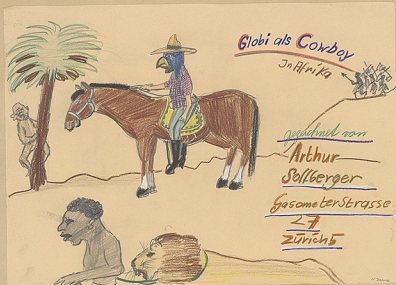 Globi als Cowboy
In Afrika
gezeichnet von
Arthur
Sollberger
Gasometerstrasse
27
Zürich 5